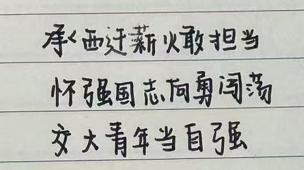 承西迁薪火敢担当
怀强国志向勇闯荡
交大青年当自强